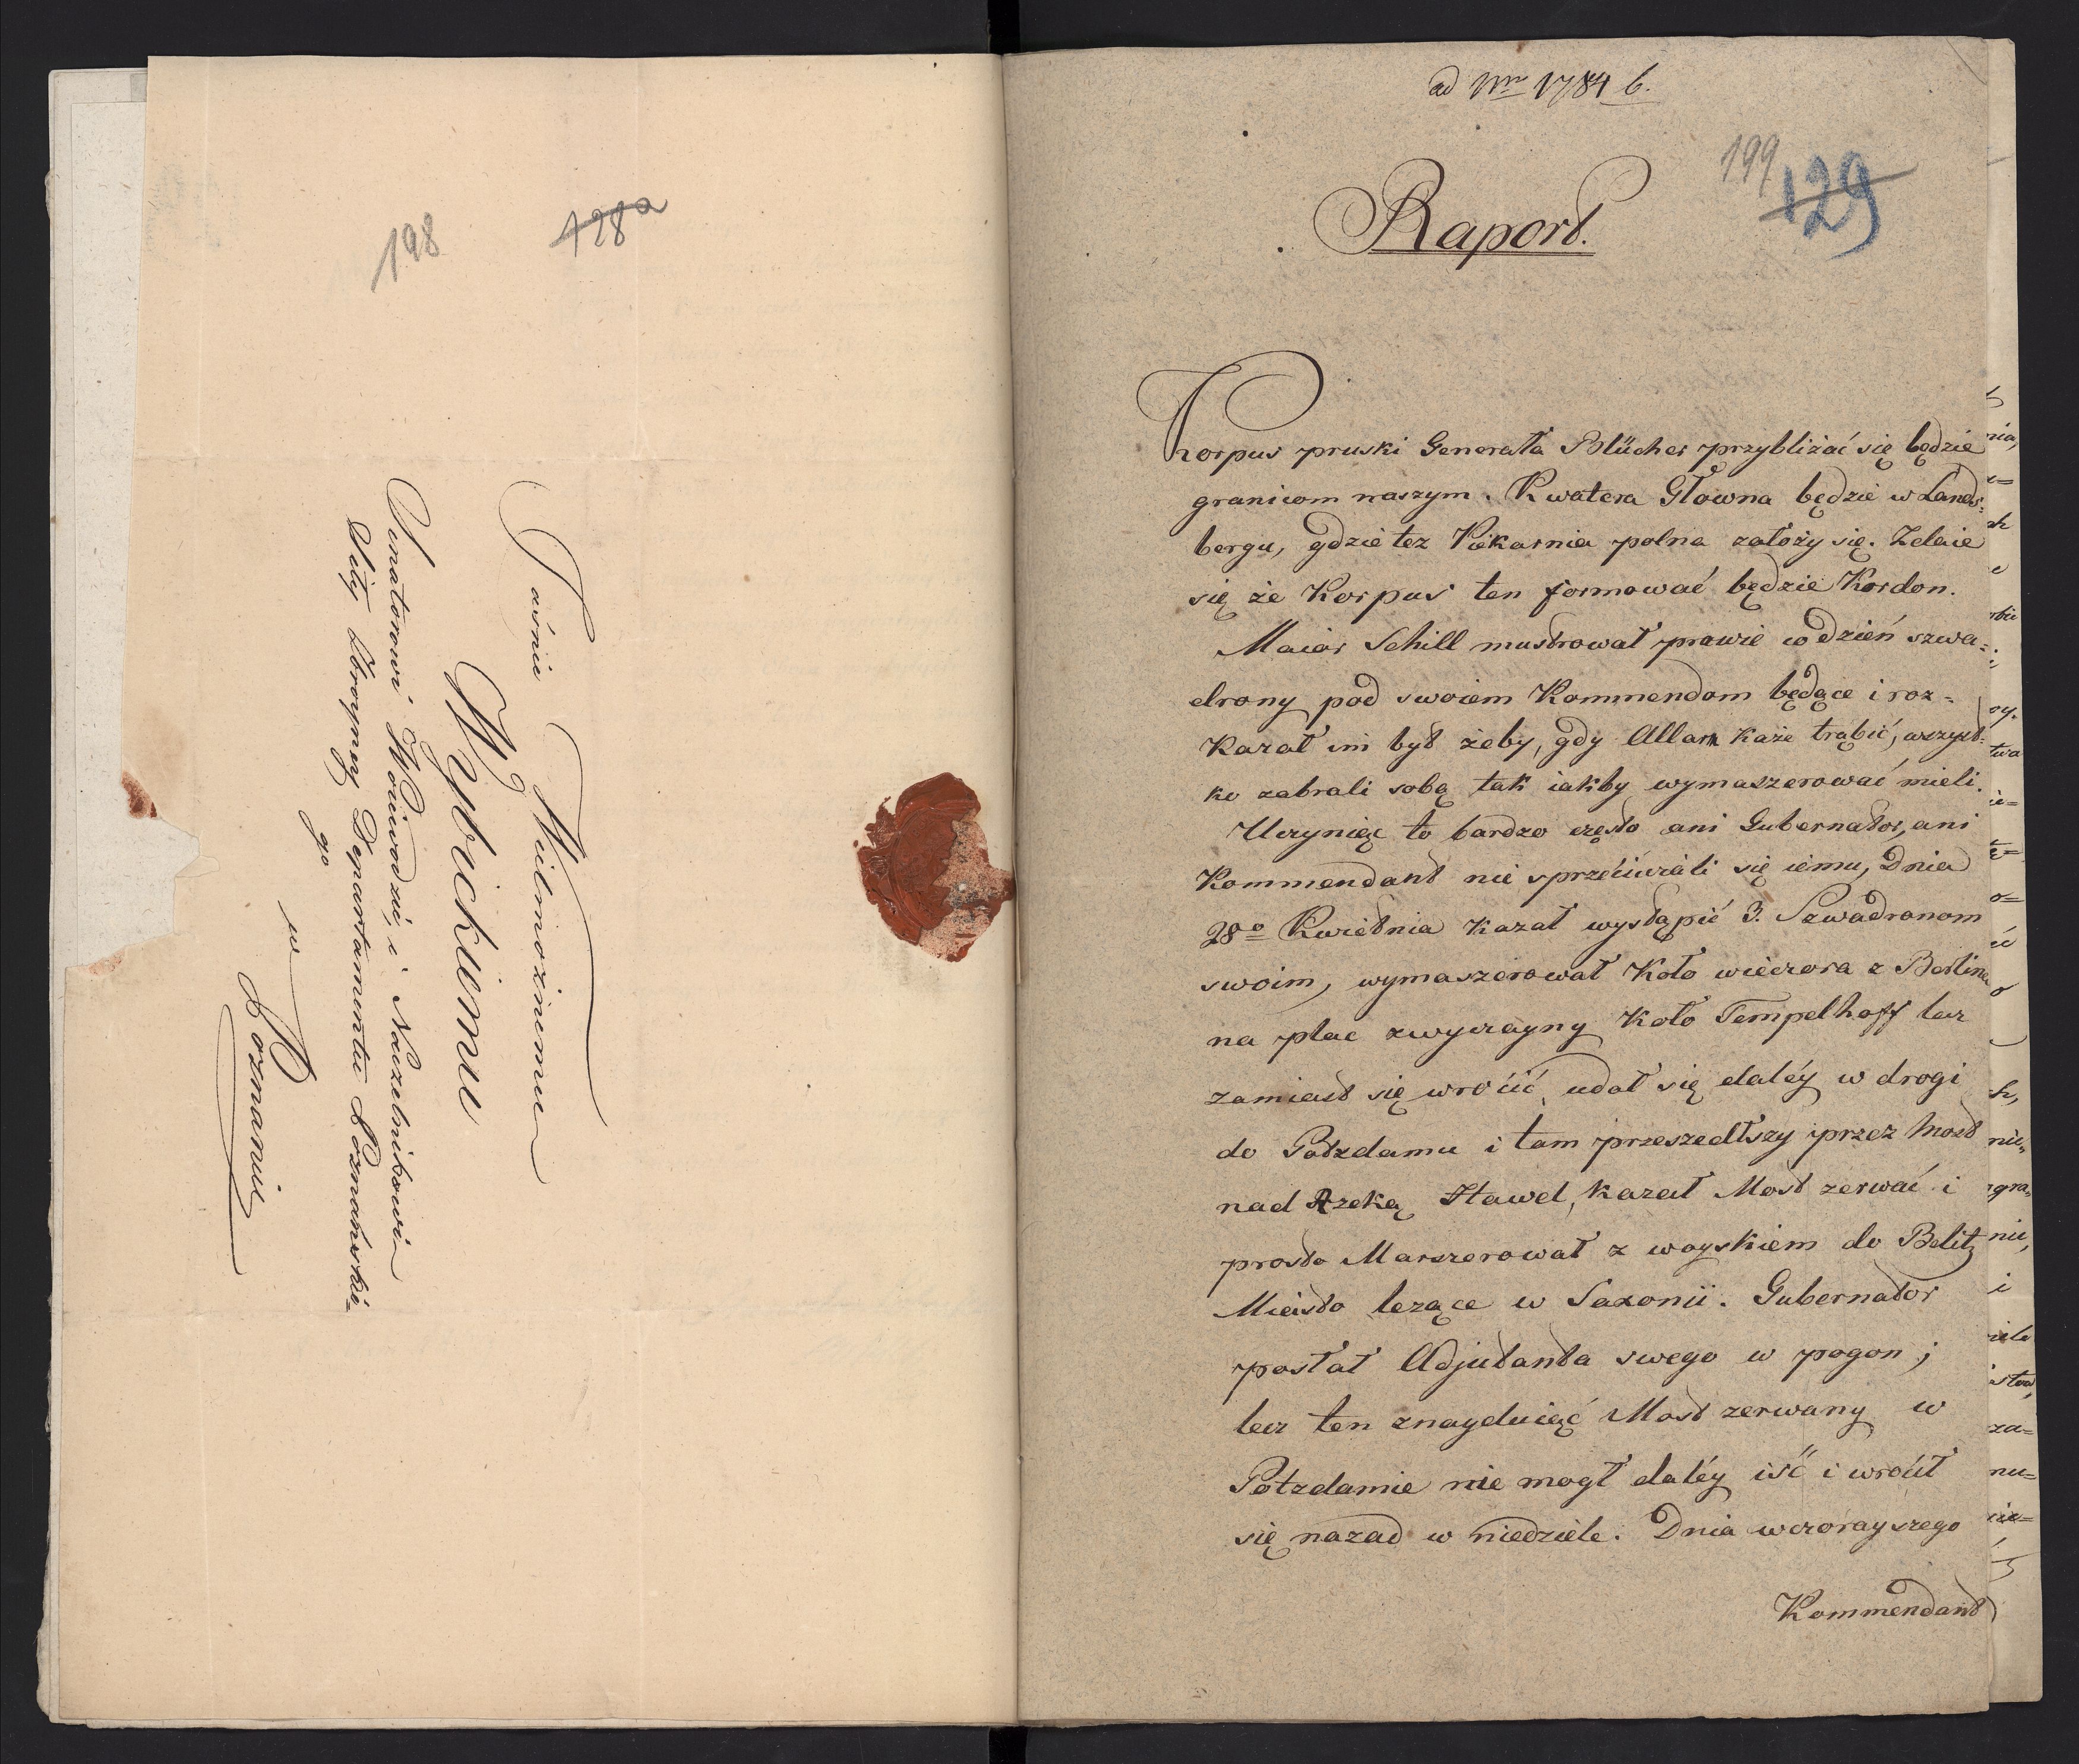 128a
198
Jaśnie Wielmożnemu
Wybickiemu
Senatorowi Woiewodzie, i Naczelnikowi
Siły Zbroyney Departamentu Poznańskie=
go
w
Poznaniu
ad Nrn 1784 b.
199
129
Raport.
Korpus pruski Generała Blücher przybliżać się będzie
granicom naszym. Kwatera Głowna będzie w Lands=
bergu, gdzie tez Piekarnia polna założy się. Zdaie
się że Korpus ten formować będzie Kordon.
Maior Schill mustrował prawie co dzień szwa=
drony pod swoiem Kommendom będące i roz=
kazał im był żeby, gdy Allarm każe trąbić, wszyst=
ko zabrali sobą tak iakby wymaszerować mieli.
Uczyniąc to bardzo często ani Gubernator, ani
Kommendant nie sprzéciwiali się iemu, Dnia
28o Kwietnia kazał wystąpić 3. Szwadronom
swoim, wymaszerował koło wieczora z Berlina
na plac zwyczayny koło Tempelhoff lecz
zamiast się wrócić, udał się daléy w drogi
do Potzdamu i tam przeszedłszy przez Most
nad Rzeką Hawel, kazał Most zerwać i
prosto Marszerował z woyskiem do Belitz
Miasto lezące w Saxonii. Gubernator
posłał Adjutanta swego w pogon;
lecz ten znayduiąć Most zerwany w
Potzdamie nie mogł daléy iść i wrócił
się nazad w niedziele. Dnia wczorayszego
Kommendant